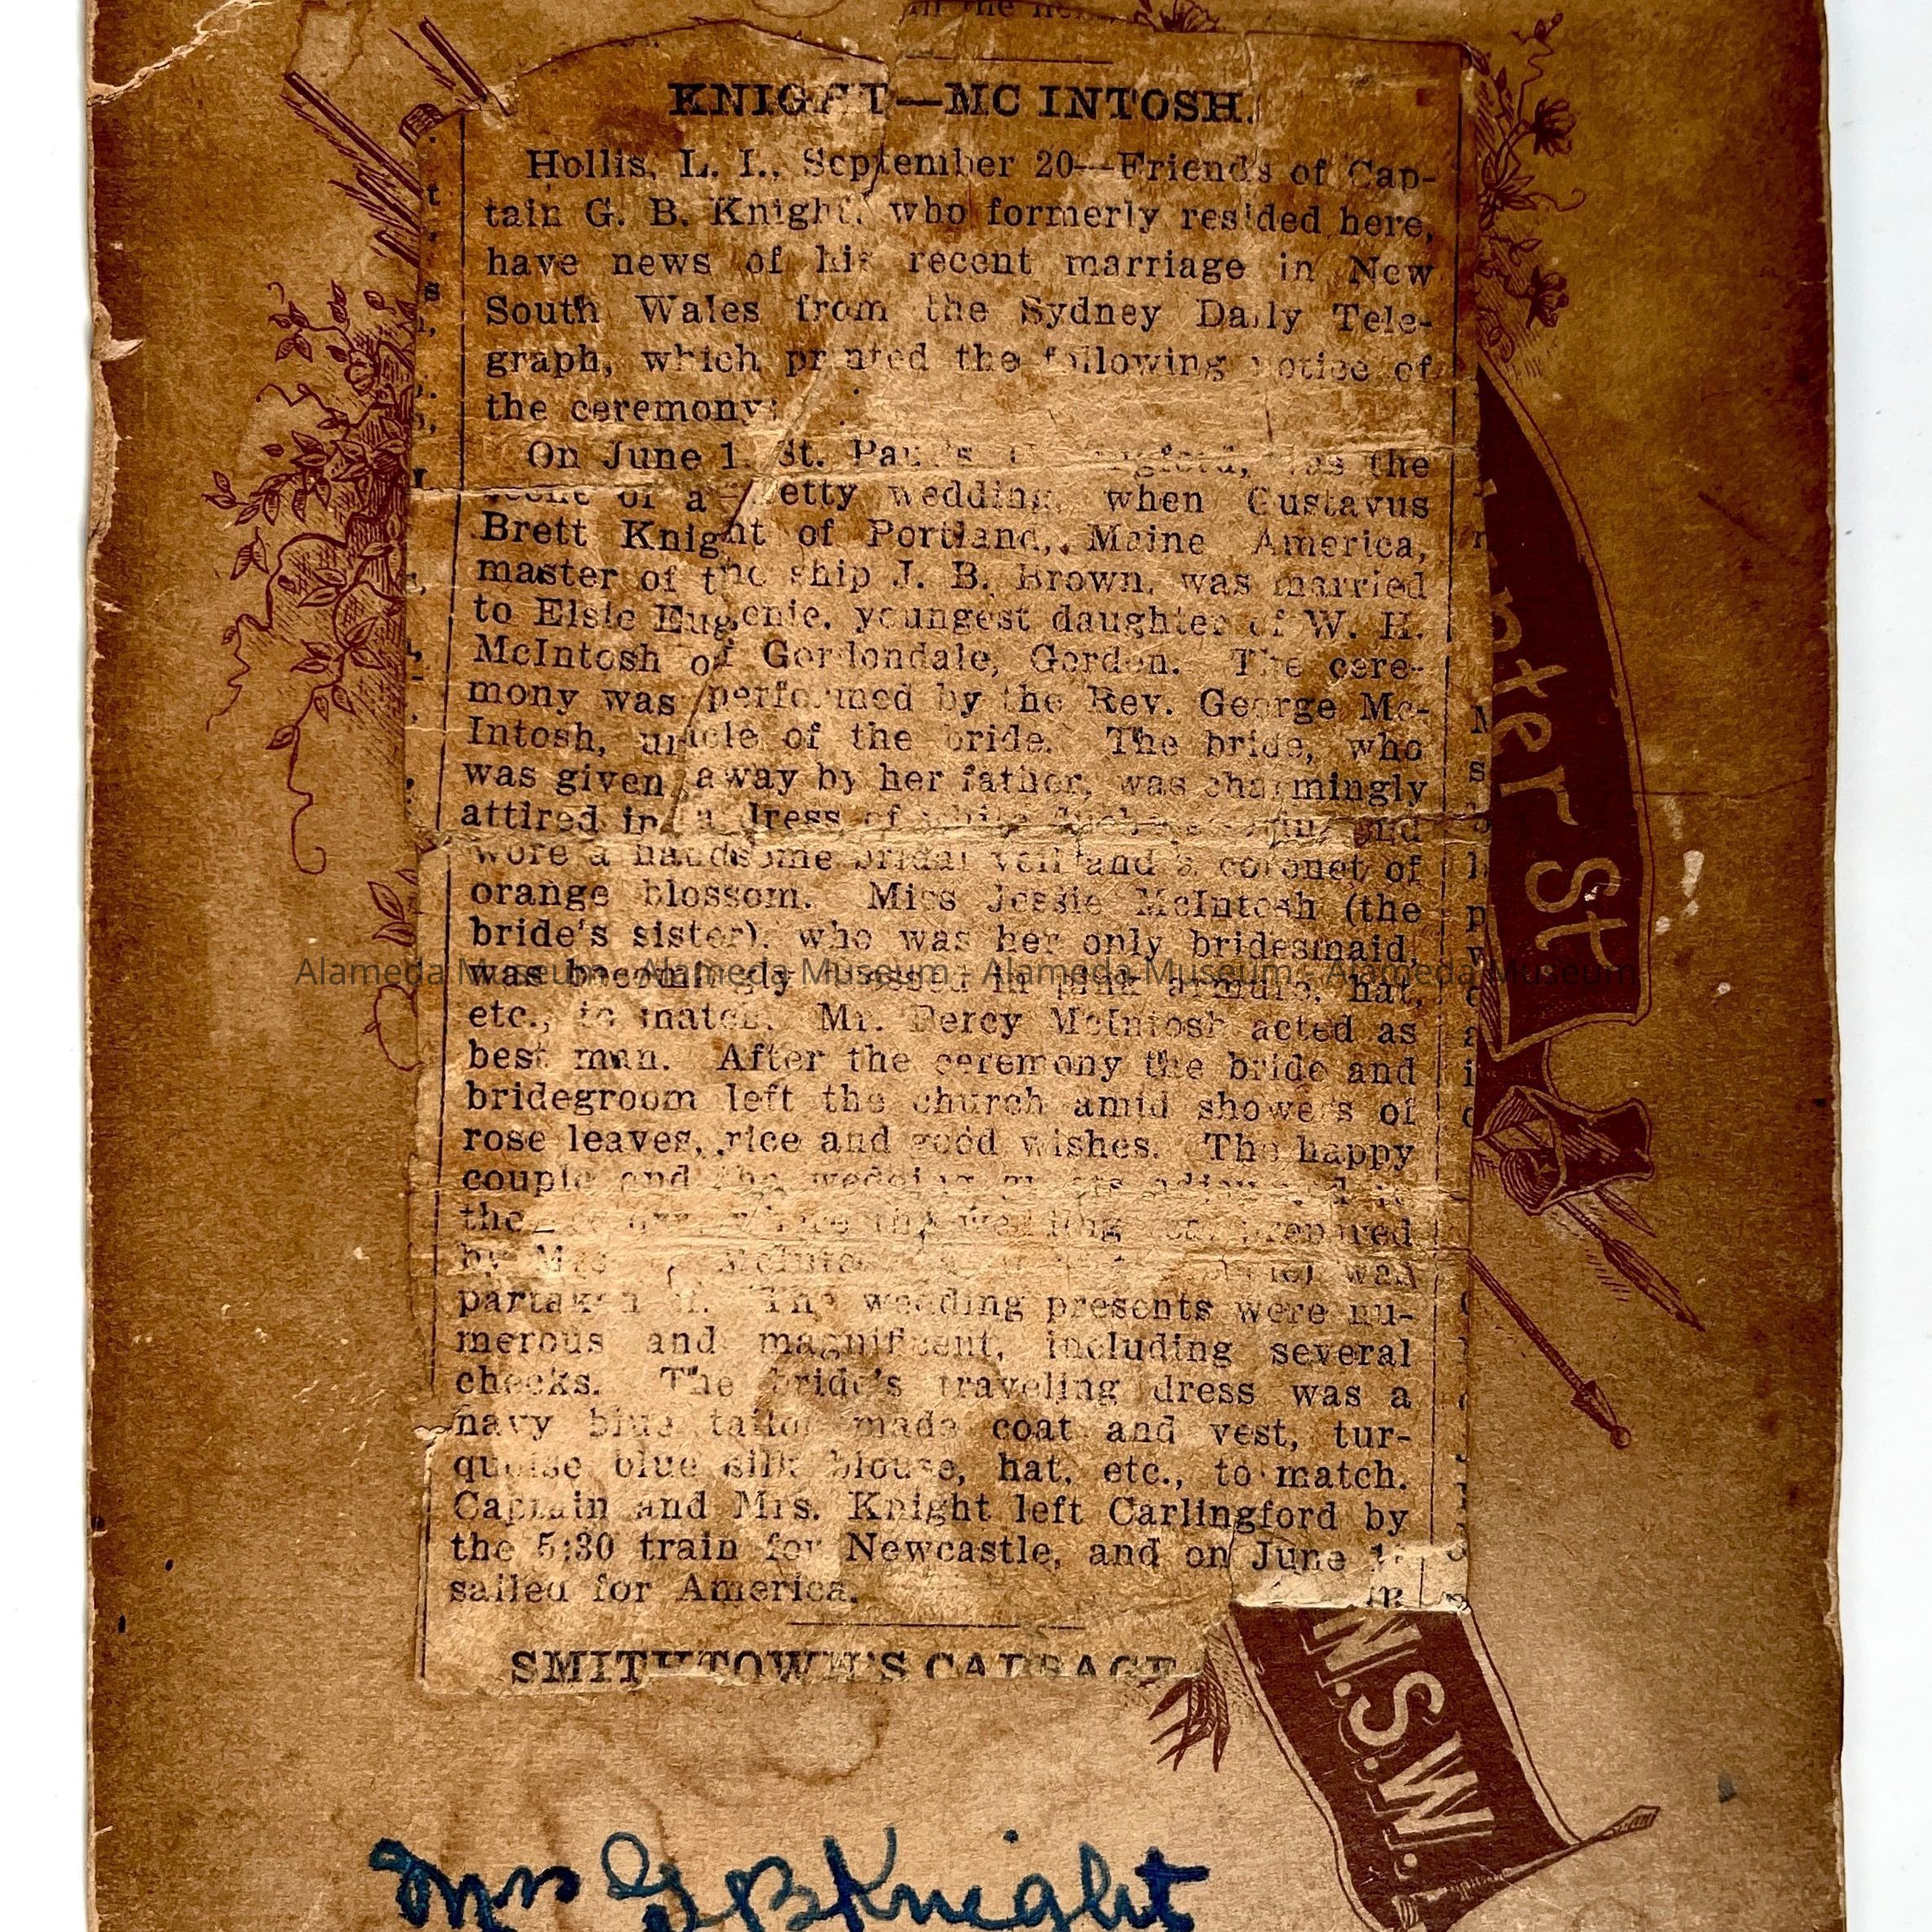 in the
KNIGHT—MC INTOSH.
Hollis, L. I., September 20—Friends of Cap-
tain G. B. Knight, who formerly resided here,
have news of his recent marriage in New
South Wales from the Sydney Daily Tele-
graph, which printed the following notice of
the ceremony:
On June 1, St. Paul's, was the
scene of a pretty wedding, when Gustavus
Brett Knight of Portland, Maine America,
master of the ship J. B. Brown, was married
to Elsie Eugenie, youngest daughter of W. H.
McIntosh of Gordondale, Gordon. The cere-
mony was performed by the Rev. George Mc-
Intosh, uncle of the bride. The bride, who
was given away by her father, was charmingly
attired in a dress of white and
wore a handsome bridal veil and a coronet of
orange blossom. Miss Jessie McIntosh (the
bride's sister), who was her only bridesmaid,
was becomingly dressed in pink armure, hat,
etc., to match. Mr. Percy McIntosh acted as
best man. After the ceremony the bride and
bridegroom left the church amid showers of
rose leaves, rice and good wishes. The happy
couple and the wedding
the prepared
by Mrs. was
partaken of. The wedding presents were nu-
merous and magnificent, including several
checks. The bride's traveling dress was a
navy blue tailor made coat and vest, tur-
quoise blue silk blouse, hat, etc., to match.
Captain and Mrs. Knight left Carlingford by
the 5:30 train for Newcastle, and on June
sailed for America.
SMITHTOWN'S CABBAGE
nter St
N.S.W.
Mrs G B Knight
Alameda Museum - Alameda Museum - Alameda Museum - Alameda Museum